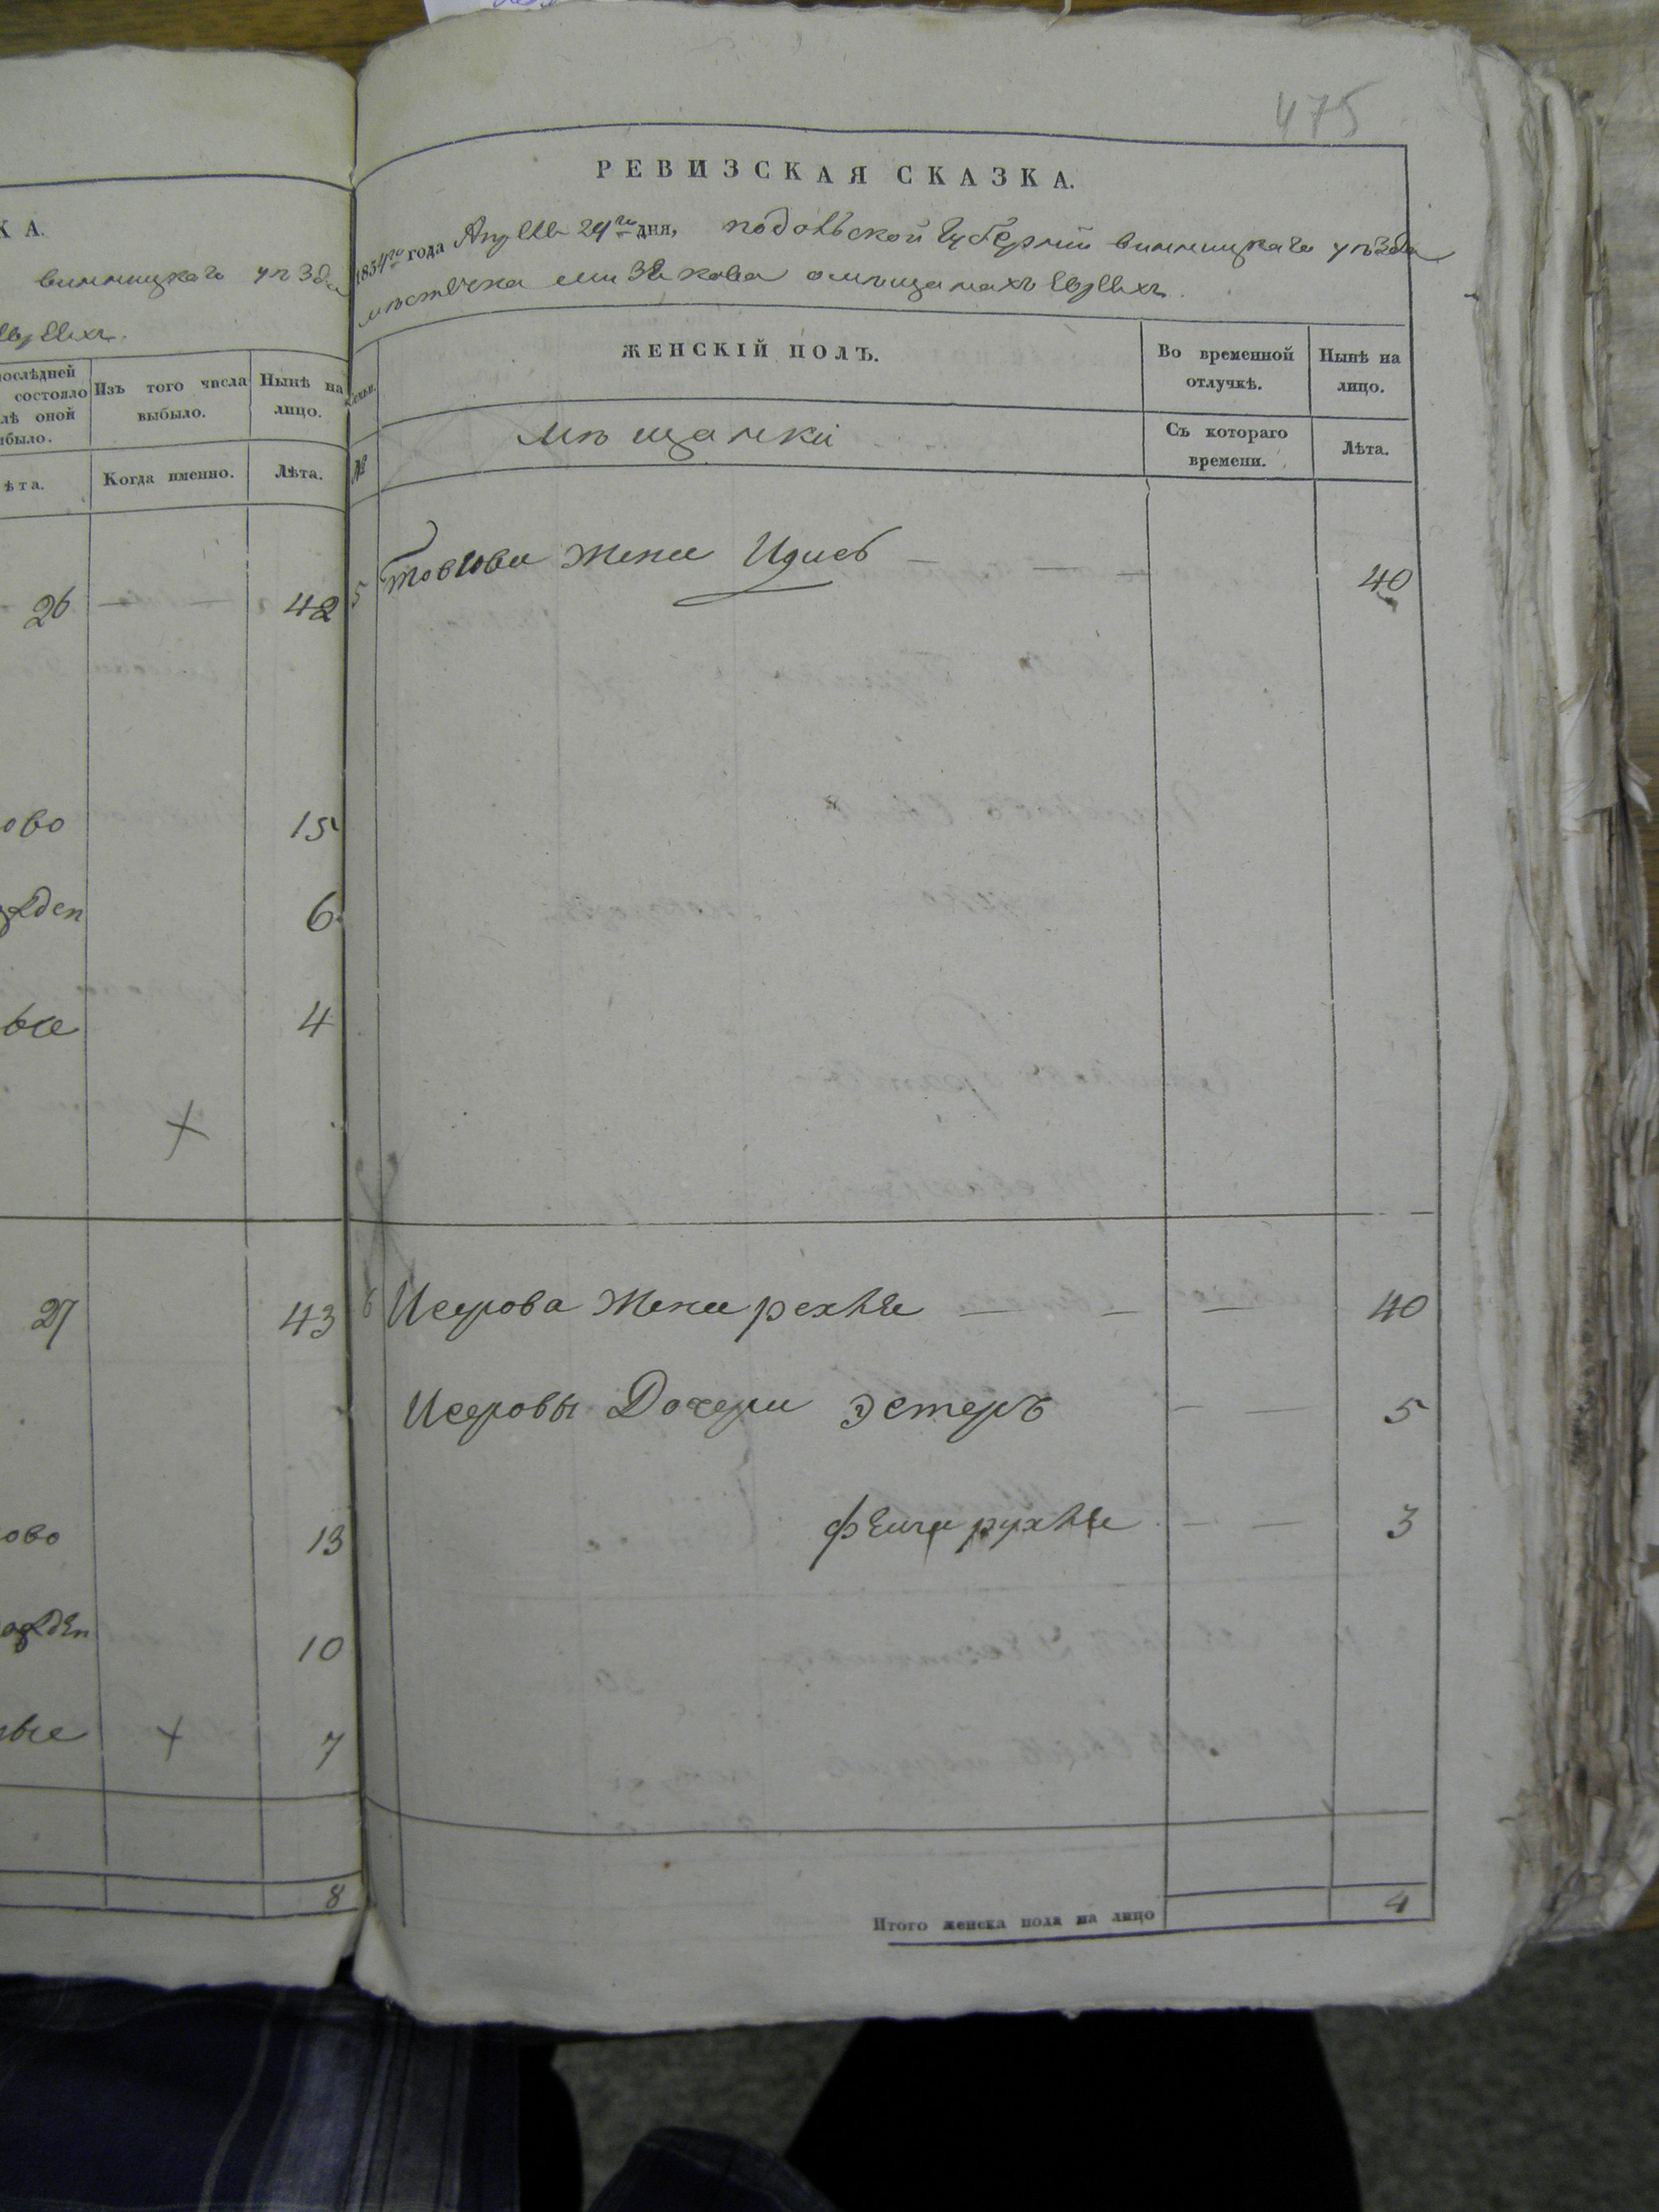 475
КА.
винницкаго уѣзда
евреяхъ.
послѣдней
состояло
лѣ оной
было.
Изъ того числа
выбыло.
Нынѣ на
лицо.
ѣта.
Когда именно.
Лѣта.
26 — 42
ово 15
6
4
27 43
ово 13
10
7
8
РЕВИЗСКАЯ СКАЗКА.
1854го года Апреля 24го дня, подольской Губерніи винницкаго уѣзда
мѣстечка омѣщанахъ евреяхъ.
ЖЕНСКІЙ ПОЛЪ.
Во временной
отлучкѣ.
Нынѣ на
лицо.
№
мѣщанки
Съ котораго
времени.
Лѣта.
5 товіова жена Идись — 40
6 Исерова жена рехля — — — 40
Исеровы Дочери эстеръ — — 5
фейга рухля — — 3
Итого женска пола на лицо 4